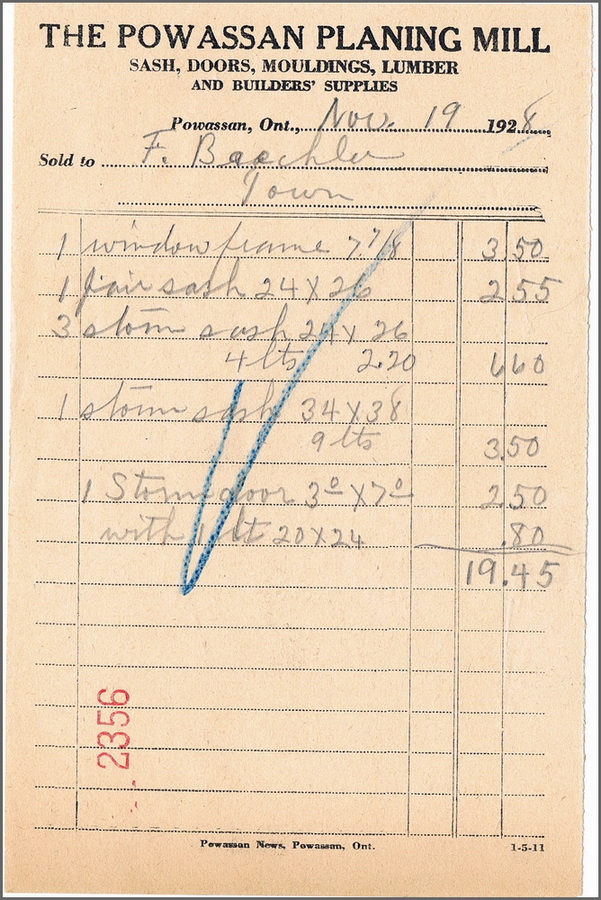 THE POWASSAN PLANING MILL
SASH, DOORS, MOULDINGS, LUMBER
AND BUILDERS' SUPPLIES
Powassan, Ont., Nov. 19 1928
Sold to F. Baechler
Town
1 window frame 7 7/8 3.50
1 pair sash 24 X 26 2.55
3 storm sash 24 X 26
4 lts 2.20 6.60
1 storm sash 34 X 38
9 lts 3.50
1 Storm door 3⁰ X 7⁰ 2.50
with 1 lt 20 X 24 .80
19.45
2356
Powassan News, Powassan, Ont. 1-5-11